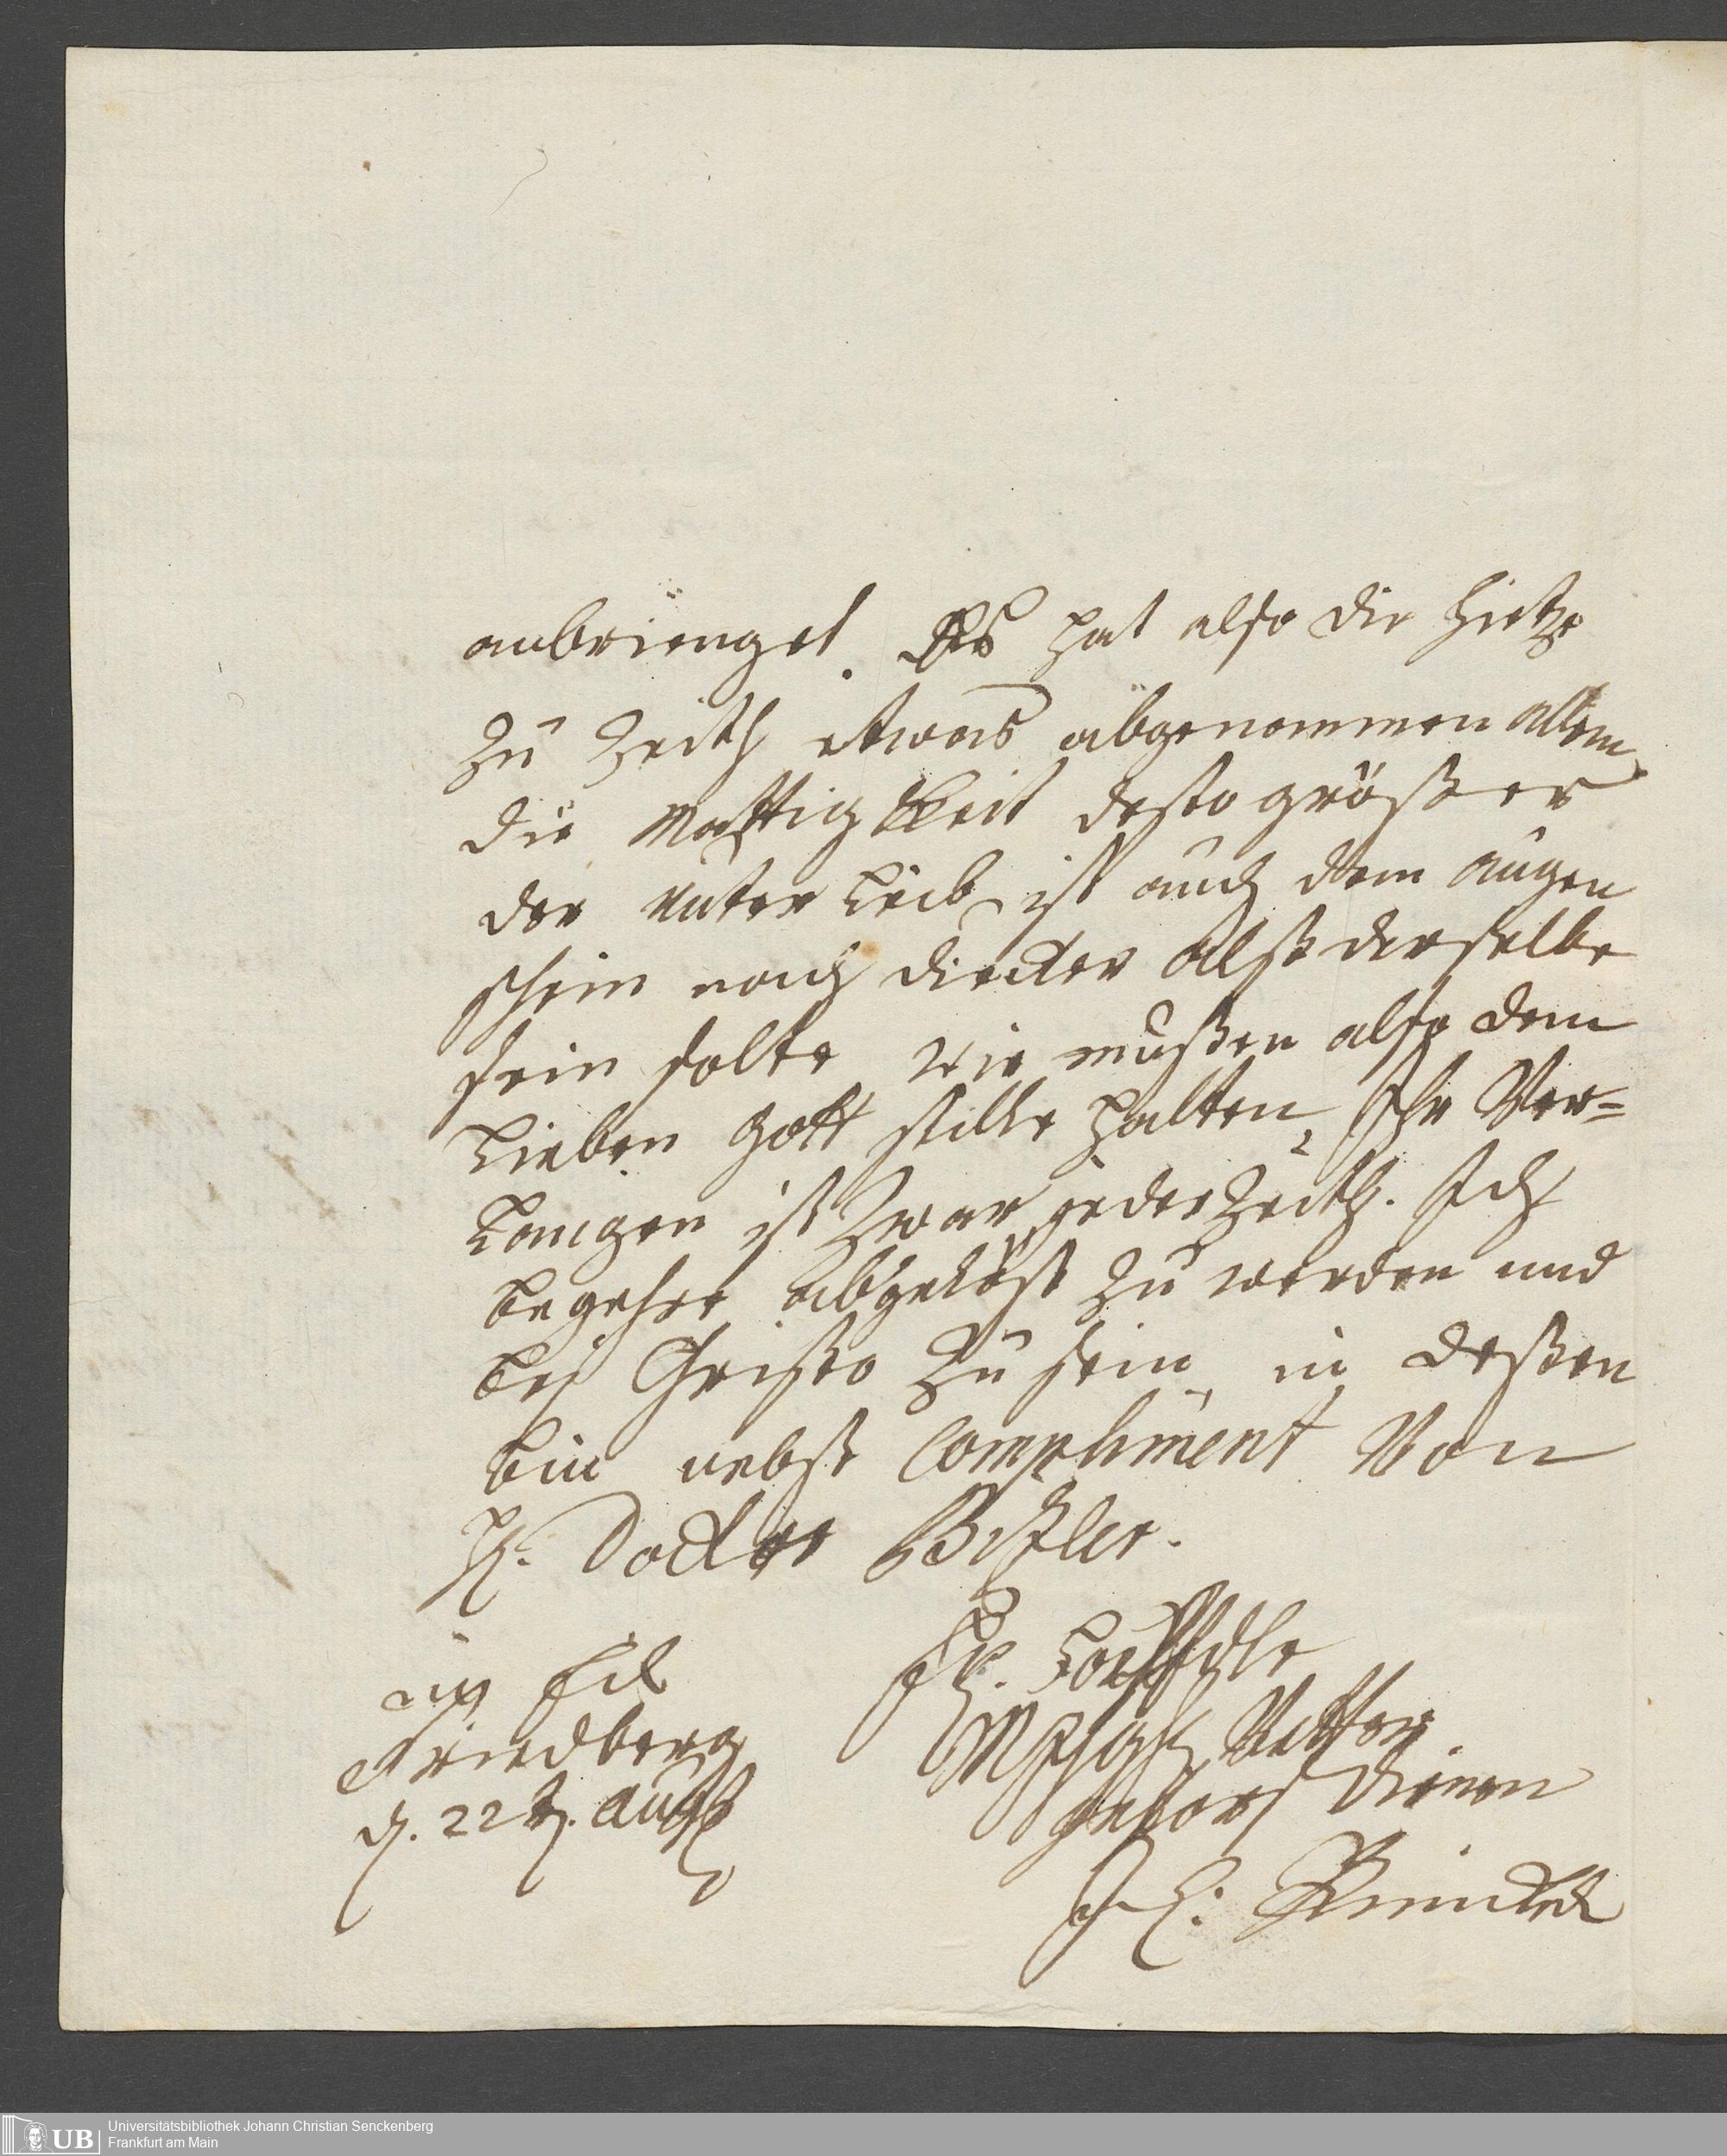 anbrienget. Es hat also die Hietze
zu Zeith etwas abgenommen allein
die Mattigkkeit desto größer
der unter Leib ist auch dem augen
schein nach diecker alß derselbe
sein solte wir mußen also dem
Lieben Gott stille halten, Ihr Ver=
Langen ist zwar jederzeith. Ich
begehre abgelöst zu werden und
bey Christo zu sein, in deßen
bin nebst Compliment Von
H. Docter
in Eil
Friedberg
d. 22 t. augst
Vetter
gehors diener